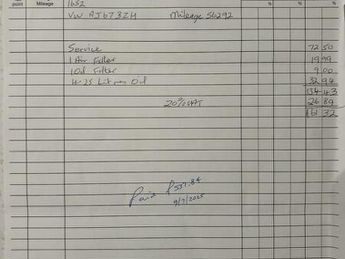 point Mileage 1652 % % % %
VW AJ67 3ZH Mileage 56292
Service 72 50
1 Air Filter 19 99
1 Oil Filter 9 00
4.25 Litres Oil 32 94
134 43
20% VAT 26 89
161 32
Paid £551.84
9/7/2025